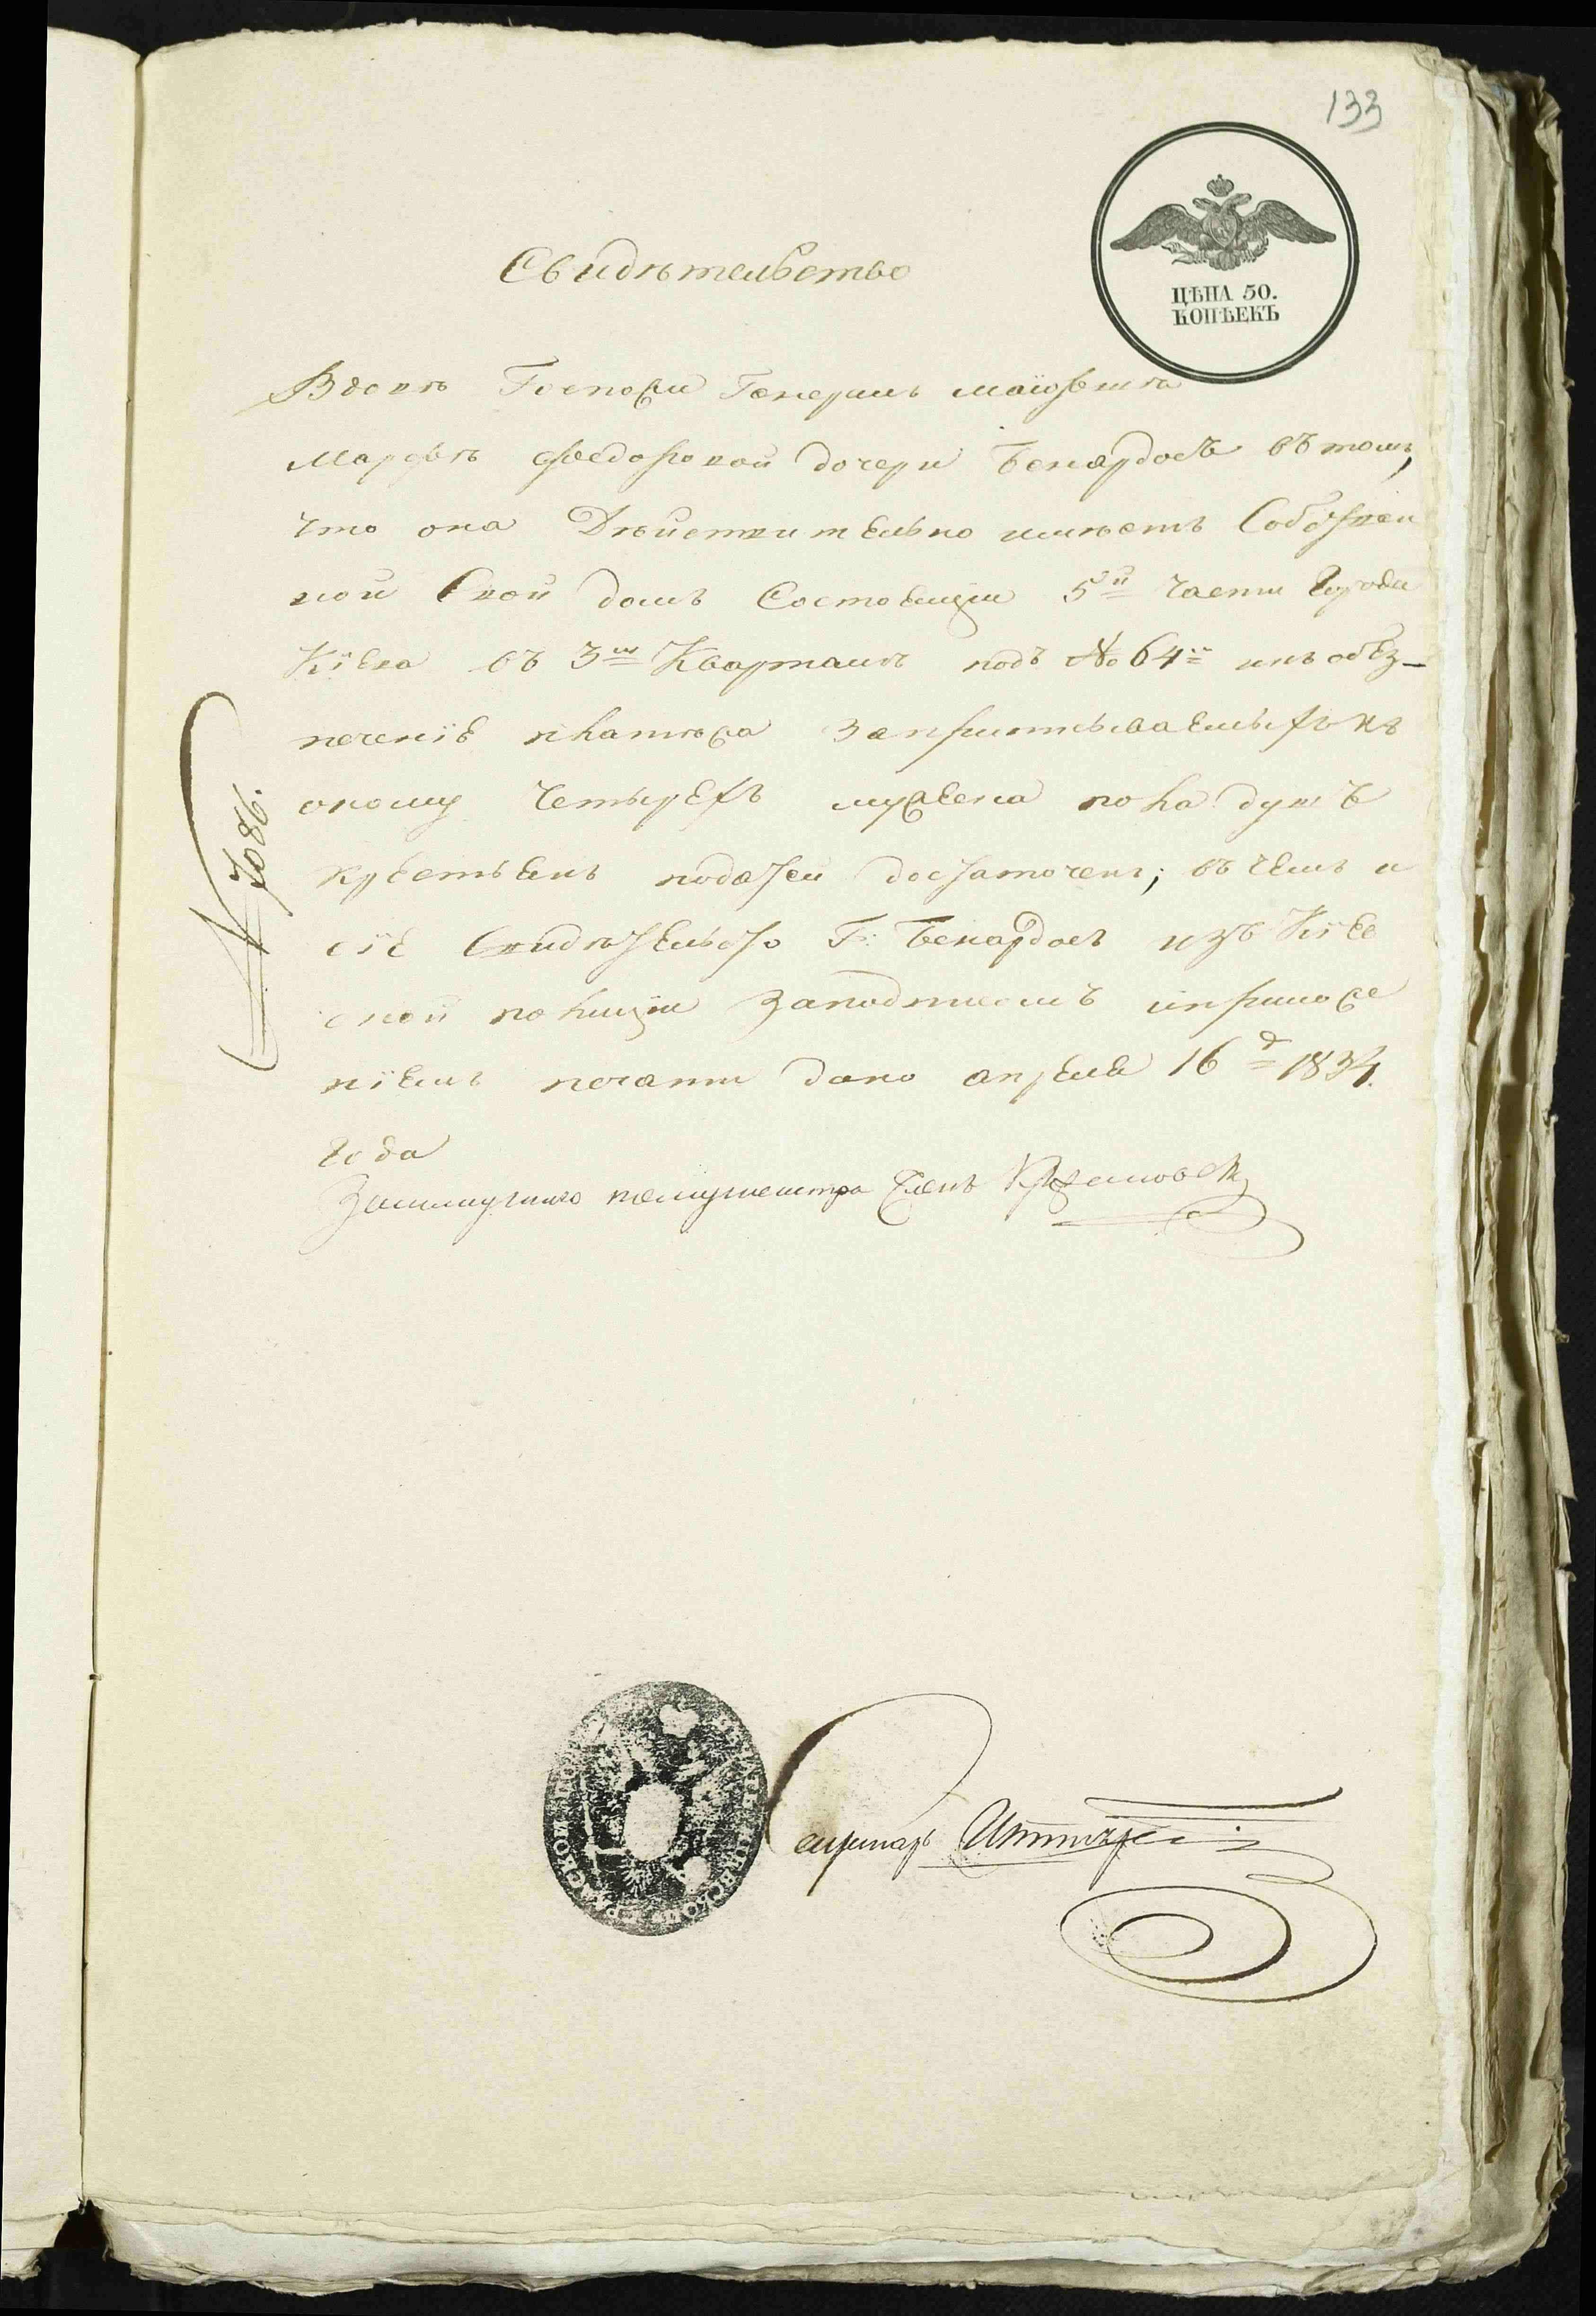 133
ЦѢНА 50.
КОПѢЕКЪ
Свидѣтельство
Вдовѣ Госпожи Генералъ маіорши
Марфѣ Федоровой дочери Бенардосъ въ томъ,
что она Дѣйствительно имѣетъ Собствен
ной Свой домъ Состоящій 5й части Города
Кіева въ 3м Кварталѣ подъ № 64й
печеніе платежа Записываемыхъ къ
оному Четырехъ мужеска пола душъ
крестьянъ податей достаточенъ; въ чемъ и
сіе Свидѣтельство Г: Бенардосъ изъ Кіев
ской полиціи Заподписомъ иприложе
ніемъ печати дано апреля 16 д 1834.
Года
полицмейстера Членъ
Секретарь
№ 7086.